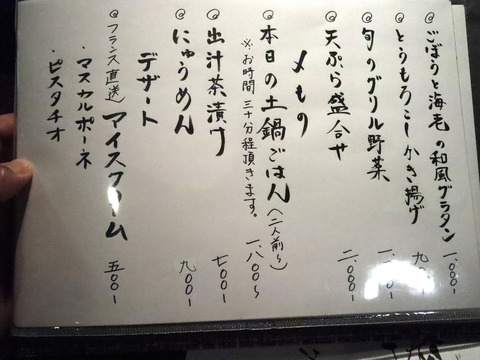 ◎ごぼうと海老の和風グラタン 一、〇〇〇-
◎とうもろこしかき揚げ 九〇〇-
◎旬のグリル野菜
◎天ぷら盛合せ 二、〇〇〇-
〆もの
◎本日の土鍋ごはん(二人前〜) 一、八〇〇〜
※お時間三十分程頂きます。
◎出汁茶漬け 七〇〇-
◎にゅうめん 九〇〇-
デザート
◎フランス直送アイスクリーム 五〇〇-
・マスカルポーネ
・ピスタチオ